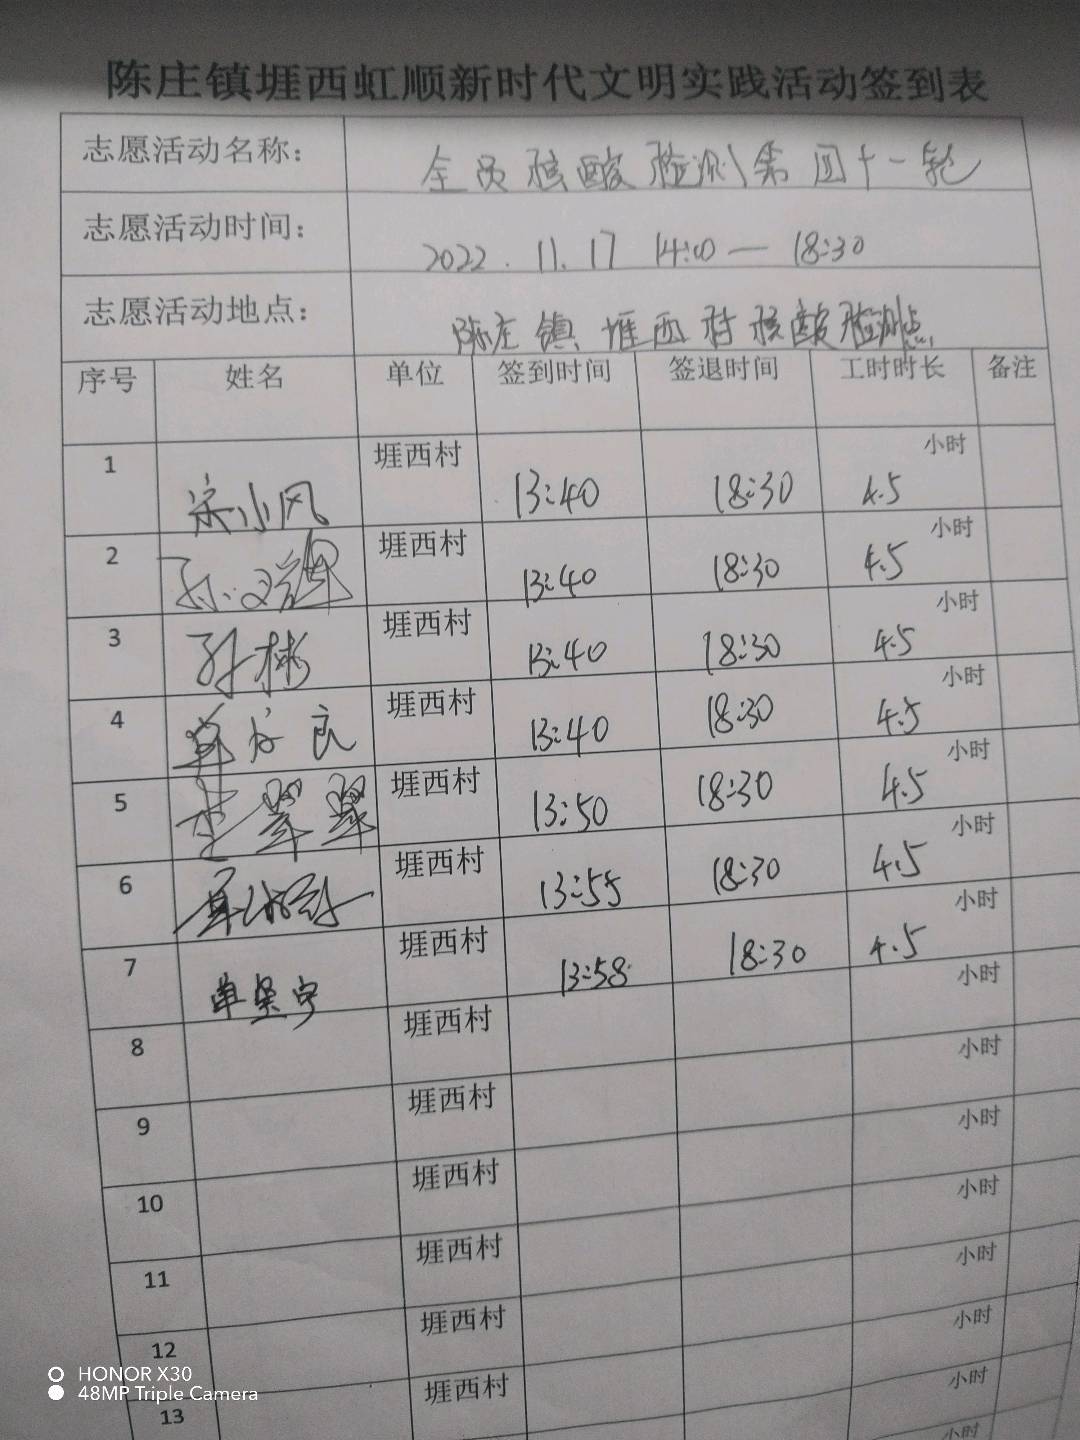 陈庄镇堐西虹顺新时代文明实践活动签到表
志愿活动名称： 全员核酸检测第四十一轮
志愿活动时间： 2022.11.17 14:00—18:30
志愿活动地点： 陈庄镇堐西村核酸检测点
序号 姓名 单位 签到时间 签退时间 工时时长 备注
1 宋小风 堐西村 13:40 18:30 4.5 小时
2 堐西村 13:40 18:30 4.5 小时
3 孙彬 堐西村 13:40 18:30 4.5 小时
4 堐西村 13:40 18:30 4.5 小时
5 翠翠 堐西村 13:50 18:30 4.5 小时
6 堐西村 13:55 18:30 4.5 小时
7 堐西村 13:58 18:30 4.5 小时
8 堐西村 小时
9 堐西村 小时
10 堐西村 小时
11 堐西村 小时
12 堐西村 小时
13 堐西村 小时
小时
HONOR X30
48MP Triple Camera